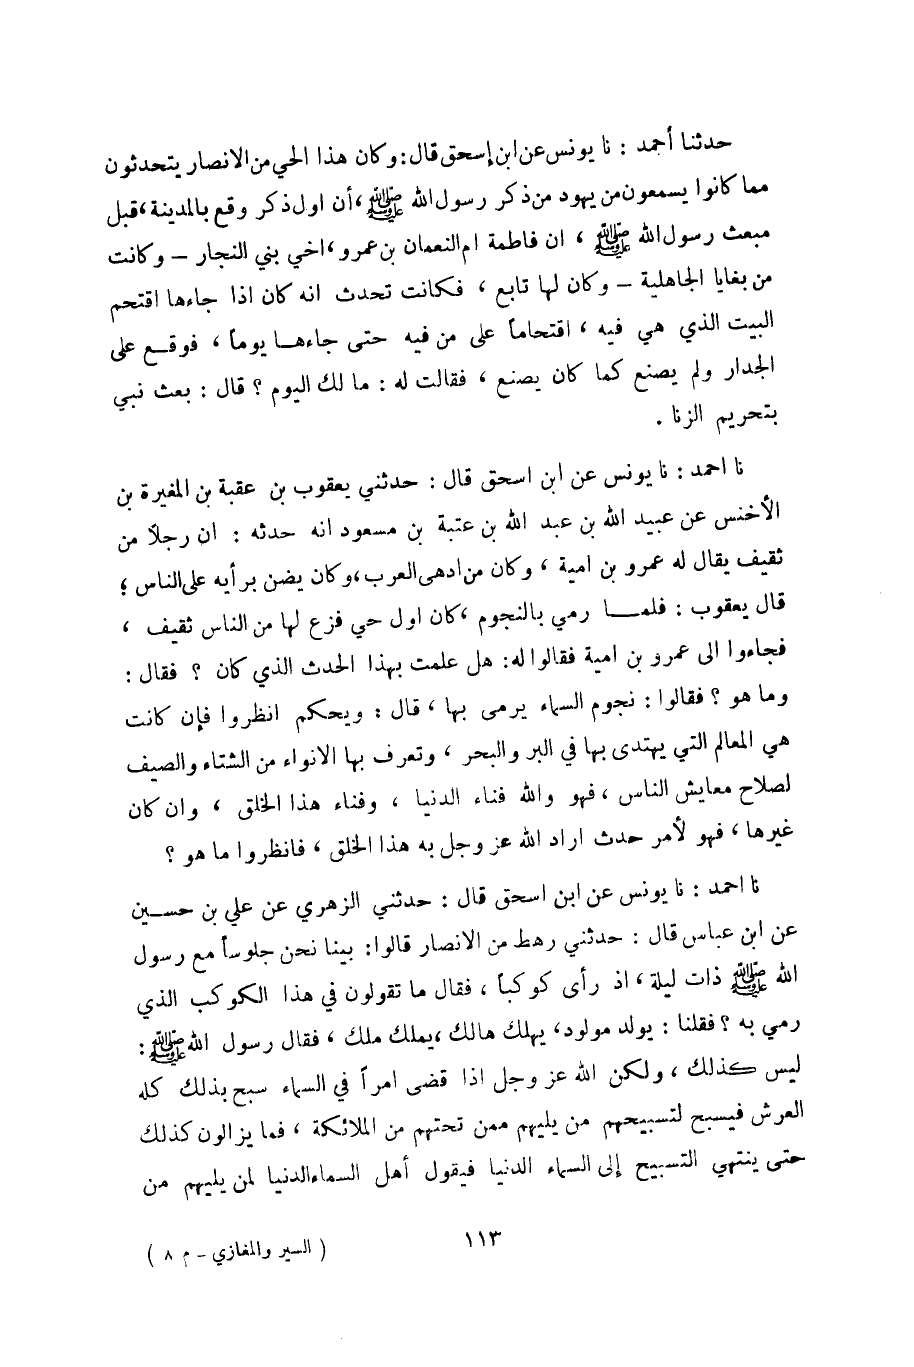 حدثنا أحمد : نا يونس عن ابن إسحق قال : وكان هذا الحي من الانصار يتحدثون
مما كانوا يسمعون من يهود من ذكر رسول الله ﷺ ، أن اول ذكر وقع بالمدينة ، قبل
مبعث رسول الله ﷺ ، ان فاطمة ام النعمان بن عمرو ، اخي بني النجار – وكانت
من بغايا الجاهلية – وكان لها تابع ، فكانت تحدث انه كان اذا جاءها اقتحم
البيت الذي هي فيه ، اقتحاماً على من فيه حتى جاءهـا يوماً ، فوقـع على
الجدار ولم يصنع كما كان يصنع ، فقالت له : ما لك اليوم ؟ قال : بعث نبي
بتحريم الزنا .
نا احمد : نا يونس عن ابن اسحق قال : حدثني يعقوب بن عقبة بن المغيرة بن
الأخنس عن عبيد الله بن عبد الله بن عتبة بن مسعود انه حدثه : ان رجلاً من
ثقيف يقال له عمرو بن امية ، وكان من ادهى العرب ، وكان يضن برأيه على الناس ؛
قال يعقوب : فلمـــا رمي بالنجوم ، كان اول حي فزع لها من الناس ثقيف ،
فجاءوا الى عمرو بن امية فقالوا له : هل علمت بهذا الحدث الذي كان ؟ فقال :
وما هو ؟ فقالوا : نجوم السماء يرمى بها ، قال : ويحكم انظروا فإن كانت
هي المعالم التي يهتدى بها في البر والبحر ، وتعرف بها الانواء من الشتاء والصيف
لصلاح معايش الناس ، فهو والله فناء الدنيا ، وفناء هذا الخلق ، وان كان
غيرها ، فهو لأمر حدث اراد الله عز وجل به هذا الخلق ، فانظروا ما هو ؟
نا احمد : نا يونس عن ابن اسحق قال : حدثني الزهري عن علي بن حســين
عن ابن عباس قال : حدثني رهط من الانصار قالوا : بينا نحن جلوساً مع رسول
الله ﷺ ذات ليلة ، اذ رأى كوكباً ، فقال ما تقولون في هذا الكوكب الذي
رمي به ؟ فقلنا : يولد مولود ، يهلك هالك ، يملك ملك ، فقال رسول الله ﷺ :
ليس كذلك ، ولكن الله عز وجل اذا قضى امراً في السماء سبح بذلك كله
العرش فيسبح لتسبيحهم من يليهم ممن تحتهم من الملائكة ، فما يزالون كذلك
حتى ينتهي التسبيح إلى السماء الدنيا فيقول أهل السماء الدنيا لمن يليهم من
١١٣
( السير والمغازي – م ٨ )